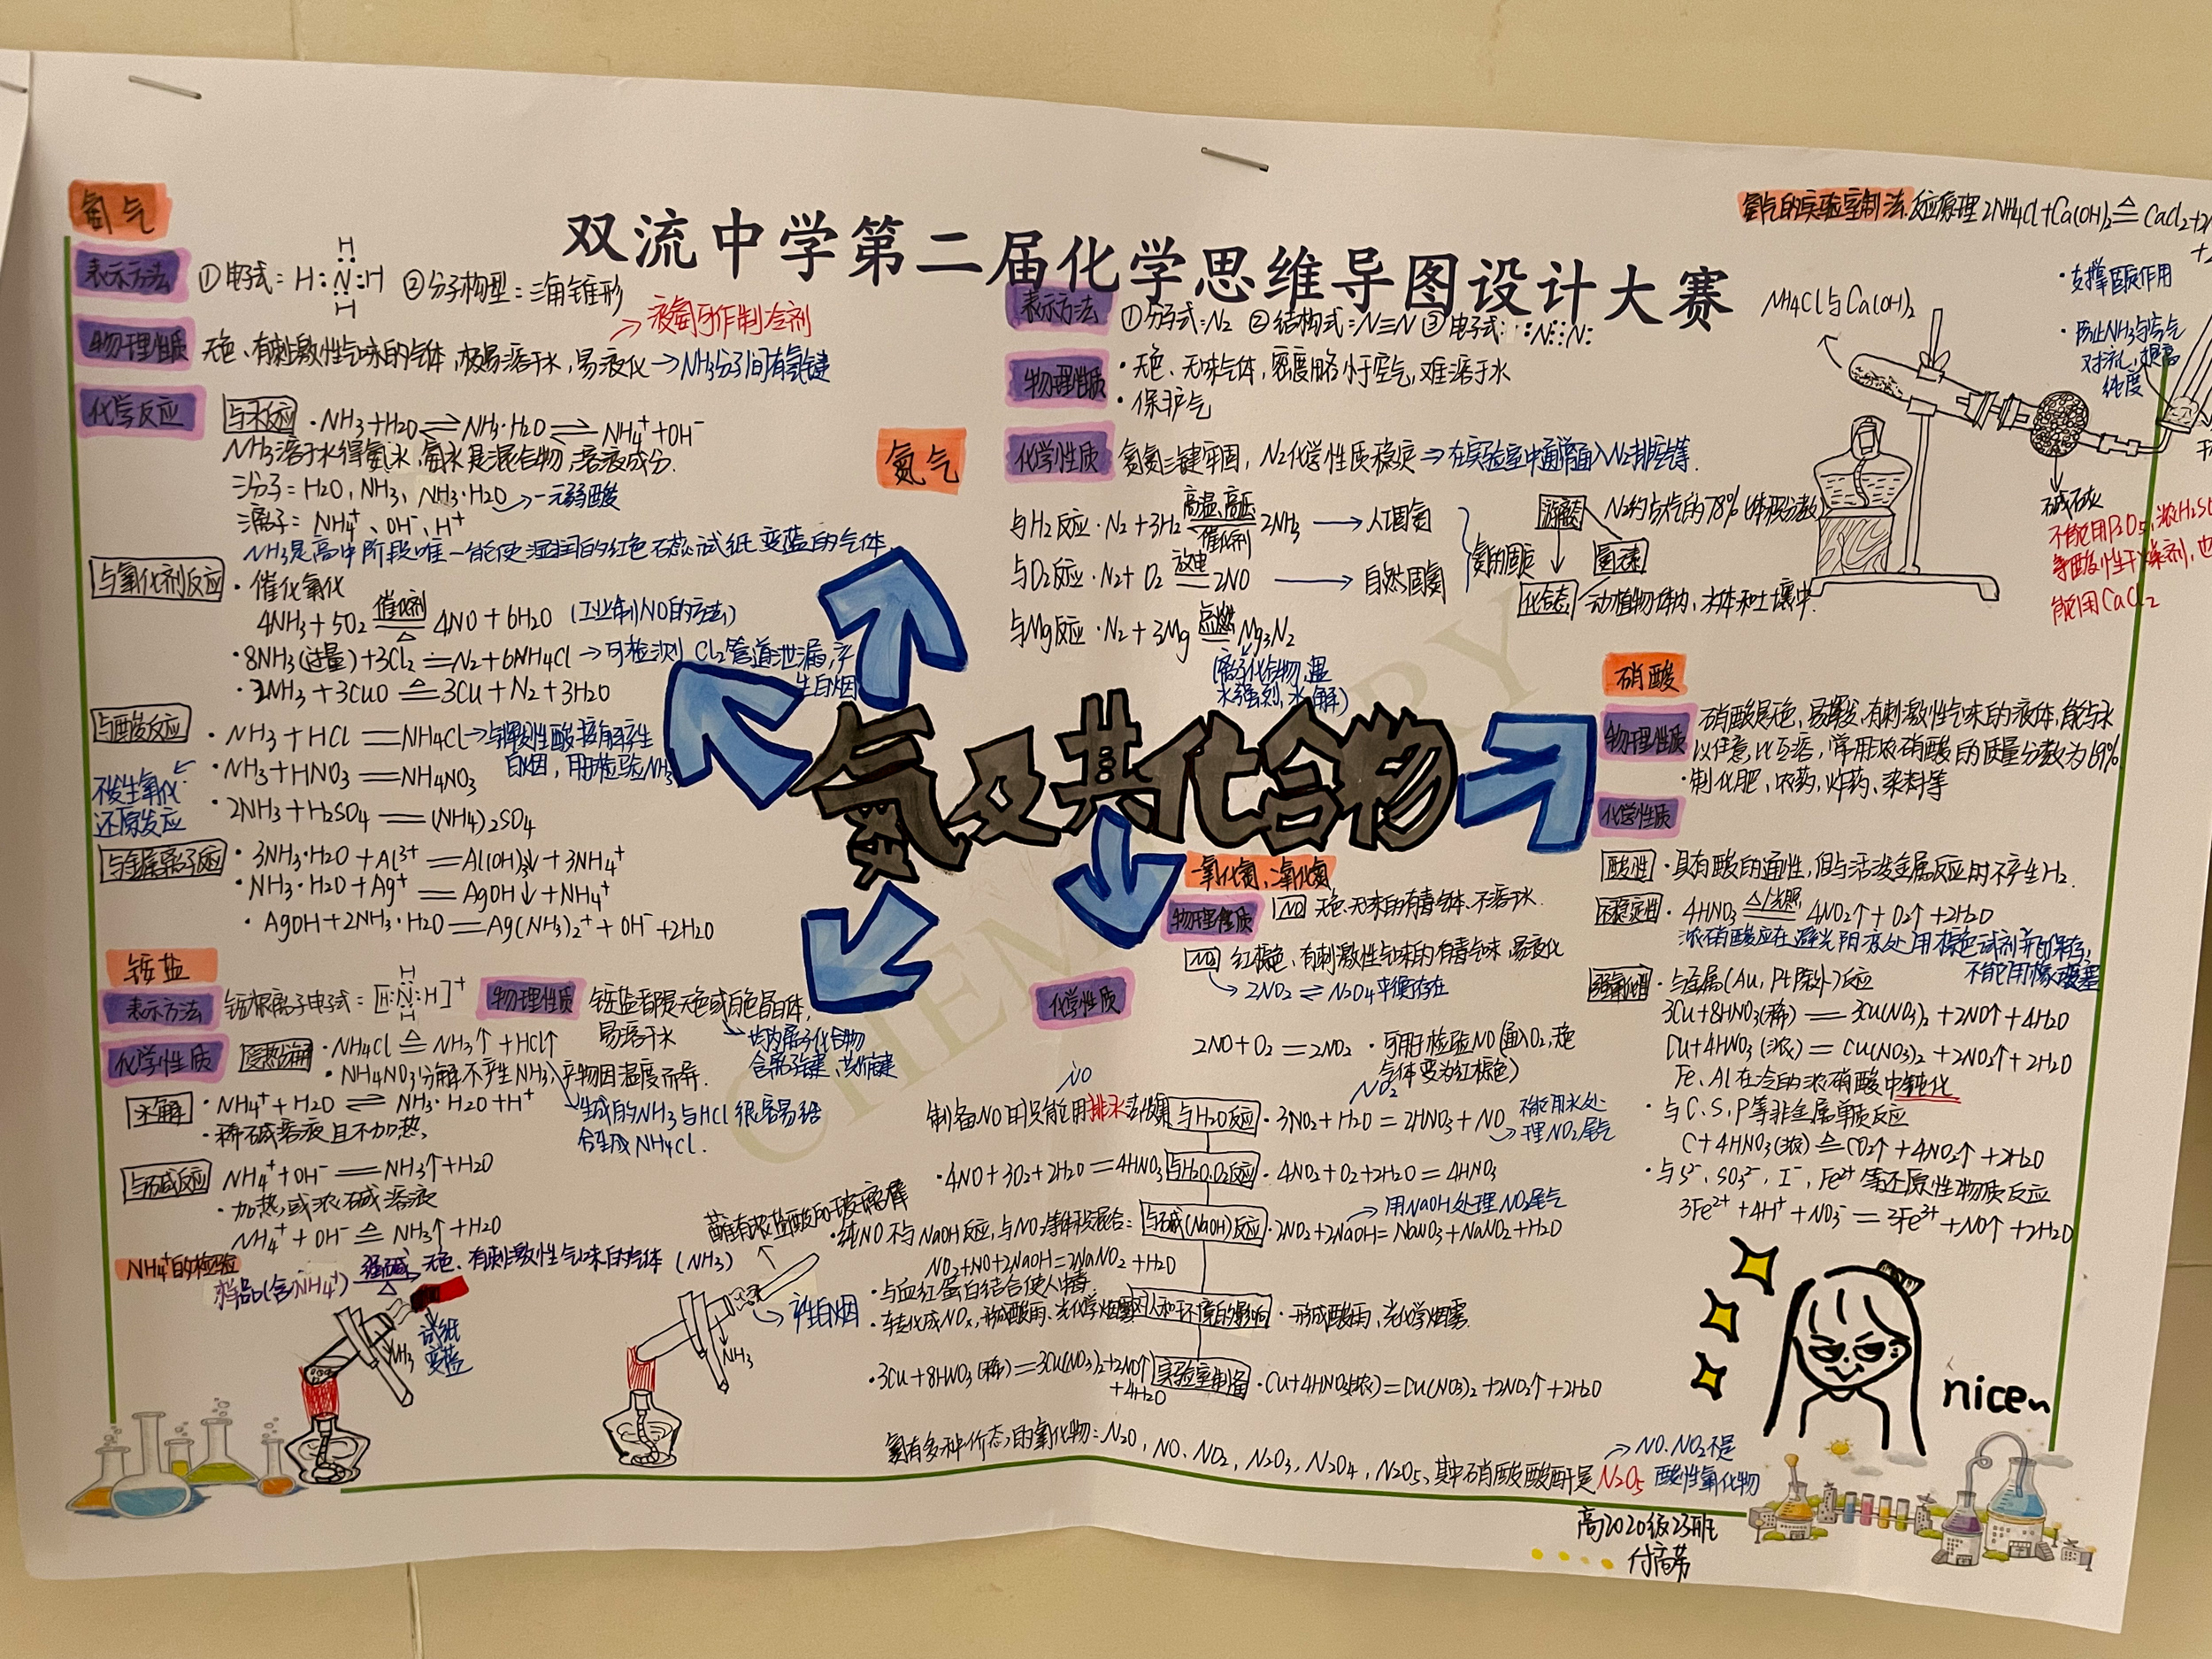 双流中学第二届化学思维导图设计大赛
氨气
表示方法 ①电子式= H:N:H ②分子构型=三角锥形
H
H
→液氨可作制冷剂
物理性质 无色、有刺激性气味的气体,极易溶于水,易液化→NH3分子间有氢键
化学反应
与水反应 ·NH3+H2O⇌NH3·H2O⇌NH4⁺+OH⁻
NH3溶于水得氨水,氨水是混合物,溶液成分.
三分子=H2O,NH3、NH3·H2O→一元弱酸
三离子=NH4⁺、OH⁻、H⁺
NH3是高中阶段唯一能使湿润的红色石蕊试纸变蓝的气体
与氧化剂反应 ·催化氧化
4NH3+5O2 催化剂 ═ △ 4NO+6H2O (工业制NO的方法)
·8NH3(过量)+3Cl2═N2+6NH4Cl→可检测Cl2管道泄漏,产
生白烟
·2NH3+3CuO ≜ 3Cu+N2+3H2O
与酸反应 ·NH3+HCl═NH4Cl→与挥发性酸接触产生
白烟,用于检验NH3
·NH3+HNO3═NH4NO3
不发生氧化
还原反应
·2NH3+H2SO4═(NH4)2SO4
与金属离子反应 ·3NH3·H2O+Al³⁺═Al(OH)3↓+3NH4⁺
·NH3·H2O+Ag⁺═AgOH↓+NH4⁺
·AgOH+2NH3·H2O═Ag(NH3)2⁺+OH⁻+2H2O
铵盐
表示方法 铵根离子电子式=[H:N:H]⁺
H
H
物理性质 铵盐都是无色或白色晶体,
易溶于水
均为离子化合物
含离子键、共价键
化学性质 受热分解 ·NH4Cl ≜ NH3↑+HCl↑
·NH4NO3分解不产生NH3,产物因温度而异.
生成的NH3与HCl很容易结
合生成NH4Cl.
水解 ·NH4⁺+H2O⇌NH3·H2O+H⁺
·稀碱溶液且不加热,
与碱反应 NH4⁺+OH⁻═NH3↑+H2O
·加热或浓碱溶液
NH4⁺+OH⁻ ≜ NH3↑+H2O
NH4⁺的检验
样品(含NH4⁺) 强碱 △ 无色、有刺激性气味的气体(NH3)
NH3
试纸
变蓝
蘸有浓盐酸的玻璃棒
产生白烟
NH3
氮气
表示方法 ①分子式=N2 ②结构式=N≡N ③电子式::N⋮⋮N:
物理性质 ·无色、无味气体,密度略小于空气,难溶于水
·保护气
化学性质 氮氮三键牢固,N2化学性质稳定⇒在实验室中通常通入N2排空等.
与H2反应·N2+3H2 高温、高压 ⇌ 催化剂 2NH3→人工固氮
与O2反应·N2+O2 放电 ═ 2NO→自然固氮
氮的固定
与Mg反应·N2+3Mg 点燃 ═ Mg3N2
(离子化合物,遇
水强烈水解)
游离态 N2约占空气的78%(体积分数)
氮元素
化合态 动植物体内,水体和土壤中.
CHEMISTRY
氮气及其化合物
一氧化氮、二氧化氮
物理性质 NO 无色无味的有毒气体、不溶于水.
NO2 红棕色、有刺激性气味的有毒气味、易液化
2NO2⇌N2O4平衡存在
化学性质
2NO+O2═2NO2 ·可用于检验NO(通入O2,无色
气体变为红棕色)
NO
NO2
制备NO时只能用排水法收集 与H2O反应 ·3NO2+H2O=2HNO3+NO 不能用水处
理NO2尾气
·4NO+3O2+2H2O═4HNO3 与H2O、O2反应 ·4NO2+O2+2H2O=4HNO3
用NaOH处理NO2尾气
·纯NO不与NaOH反应,与NO2等体积混合: 与碱(NaOH)反应 ·2NO2+2NaOH=NaNO3+NaNO2+H2O
NO2+NO+2NaOH=2NaNO2+H2O
·与血红蛋白结合使人中毒.
·转化成NOx,形成酸雨、光化学烟雾 对人和环境的影响 ·形成酸雨、光化学烟雾.
·3Cu+8HNO3(稀)═3Cu(NO3)2+2NO↑ 实验室制备 ·Cu+4HNO3(浓)=Cu(NO3)2+2NO2↑+2H2O
+4H2O
氮有多种价态的氧化物:N2O,NO、NO2,N2O3,N2O4,N2O5,其中硝酸酸酐是N2O5
→NO、NO2不是
酸性氧化物
氨气的实验室制法.反应原理2NH4Cl+Ca(OH)2 ≜ CaCl2+2
·支撑固定作用
NH4Cl与Ca(OH)2
·防止NH3与空气
对流,提高
纯度
碱石灰
不能用P2O5,浓H2SO
等酸性干燥剂,也
能用CaCl2
硝酸
物理性质 硝酸是无色、易挥发、有刺激性气味的液体,能与水
以任意比互溶,常用浓硝酸的质量分数为69%
·制化肥、农药、炸药、染料等
化学性质
酸性 ·具有酸的通性,但与活泼金属反应时不产生H2.
不稳定性 ·4HNO3 △/光照 ═ 4NO2↑+O2↑+2H2O
浓硝酸应在避光阴凉处用棕色试剂瓶保存,
不能用橡胶塞
强氧化性 ·与金属(Au,Pt除外)反应
3Cu+8HNO3(稀)═3Cu(NO3)2+2NO↑+4H2O
Cu+4HNO3(浓)=Cu(NO3)2+2NO2↑+2H2O
Fe、Al在冷的浓硝酸中钝化
·与C、S、P等非金属单质反应
C+4HNO3(浓) ≜ CO2↑+4NO2↑+2H2O
·与S²⁻、SO3²⁻、I⁻、Fe²⁺等还原性物质反应
3Fe²⁺+4H⁺+NO3⁻=3Fe³⁺+NO↑+2H2O
nice~
高2020级23班